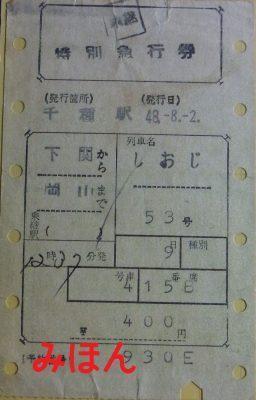 特別急行券
(発行箇所) (発行日)
千種駅 48.-8.-2.
下関から
岡山まで
列車名
しおじ
53号
9日 種別
時 分発
号車 番席
4 15E
400円
930E
みほん